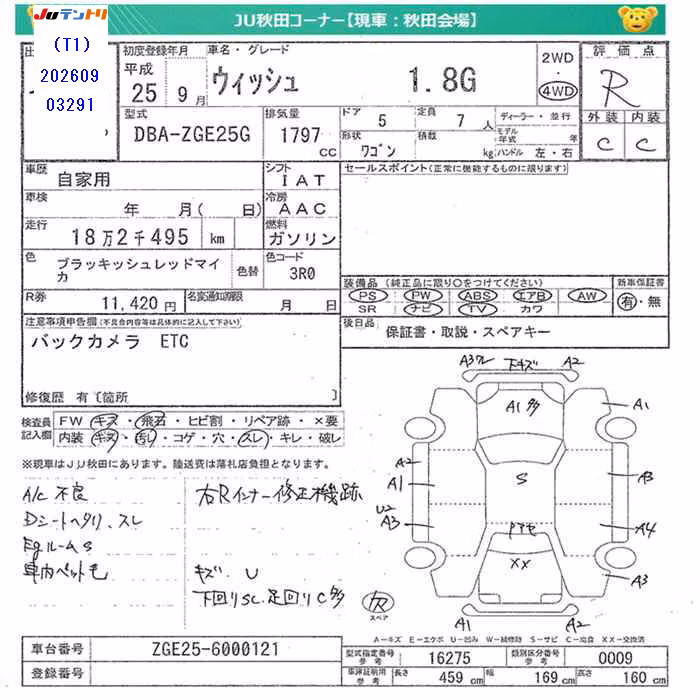 JUテントリ
JU秋田コーナー【現車：秋田会場】
(T1)
202609
03291
初度登録年月
平成
25 9月
車名・グレード
ウィッシュ 1.8G
2WD
4WD
評価点
R
型式
DBA-ZGE25G
排気量
1797 CC
ドア 5
定員 7 人
形状 ワゴン
積載 kg
ディーラー・並行
モデル年式 年
ハンドル 左・右
外装 内装
C C
車歴
自家用
シフト
IAT
セールスポイント(正常に機能するものに限ります)
車検
年 月( 日)
冷房
AAC
走行
18万2千495 km
燃料
ガソリン
色
ブラッキッシュレッドマイカ
色替
色コード
3R0
R券
11,420円
名変通知期限
月 日
装備品(純正品に限り○をつけてください)
PS PW ABS エアB AW
SR ナビ TV カワ
新車保証書
有・無
後日品
保証書・取説・スペアキー
注意事項申告欄(不具合内容等は具体的に記入して下さい)
バックカメラ ETC
修復歴 有〔箇所 〕
検査員記入欄
FW キズ・飛石・ヒビ割・リペア跡・×要
内装 キズ・汚し・コゲ・穴・スレ・キレ・破レ
※現車はJU秋田にあります。陸送費は落札店負担となります。
A/C 不良
Dシートヘタリ、スレ
EgルームS
車内ペット毛
右Rインナー修正機跡
キズ、U
下回りSC、足回りC多
A3ワレ 下キズ A2
A1多
A1
A2
A1
S
A3
U2
A3
A4
XX
A3
A1 A2
スペア
A-キズ E-エクボ U-凹み W-補修跡 S-サビ C-腐食 XX-交換済
車台番号
ZGE25-6000121
登録番号
型式指定番号 参考
16275
類別区分番号 参考
0009
車庫証明用 参考
長さ 459 cm
幅 169 cm
高さ 160 cm